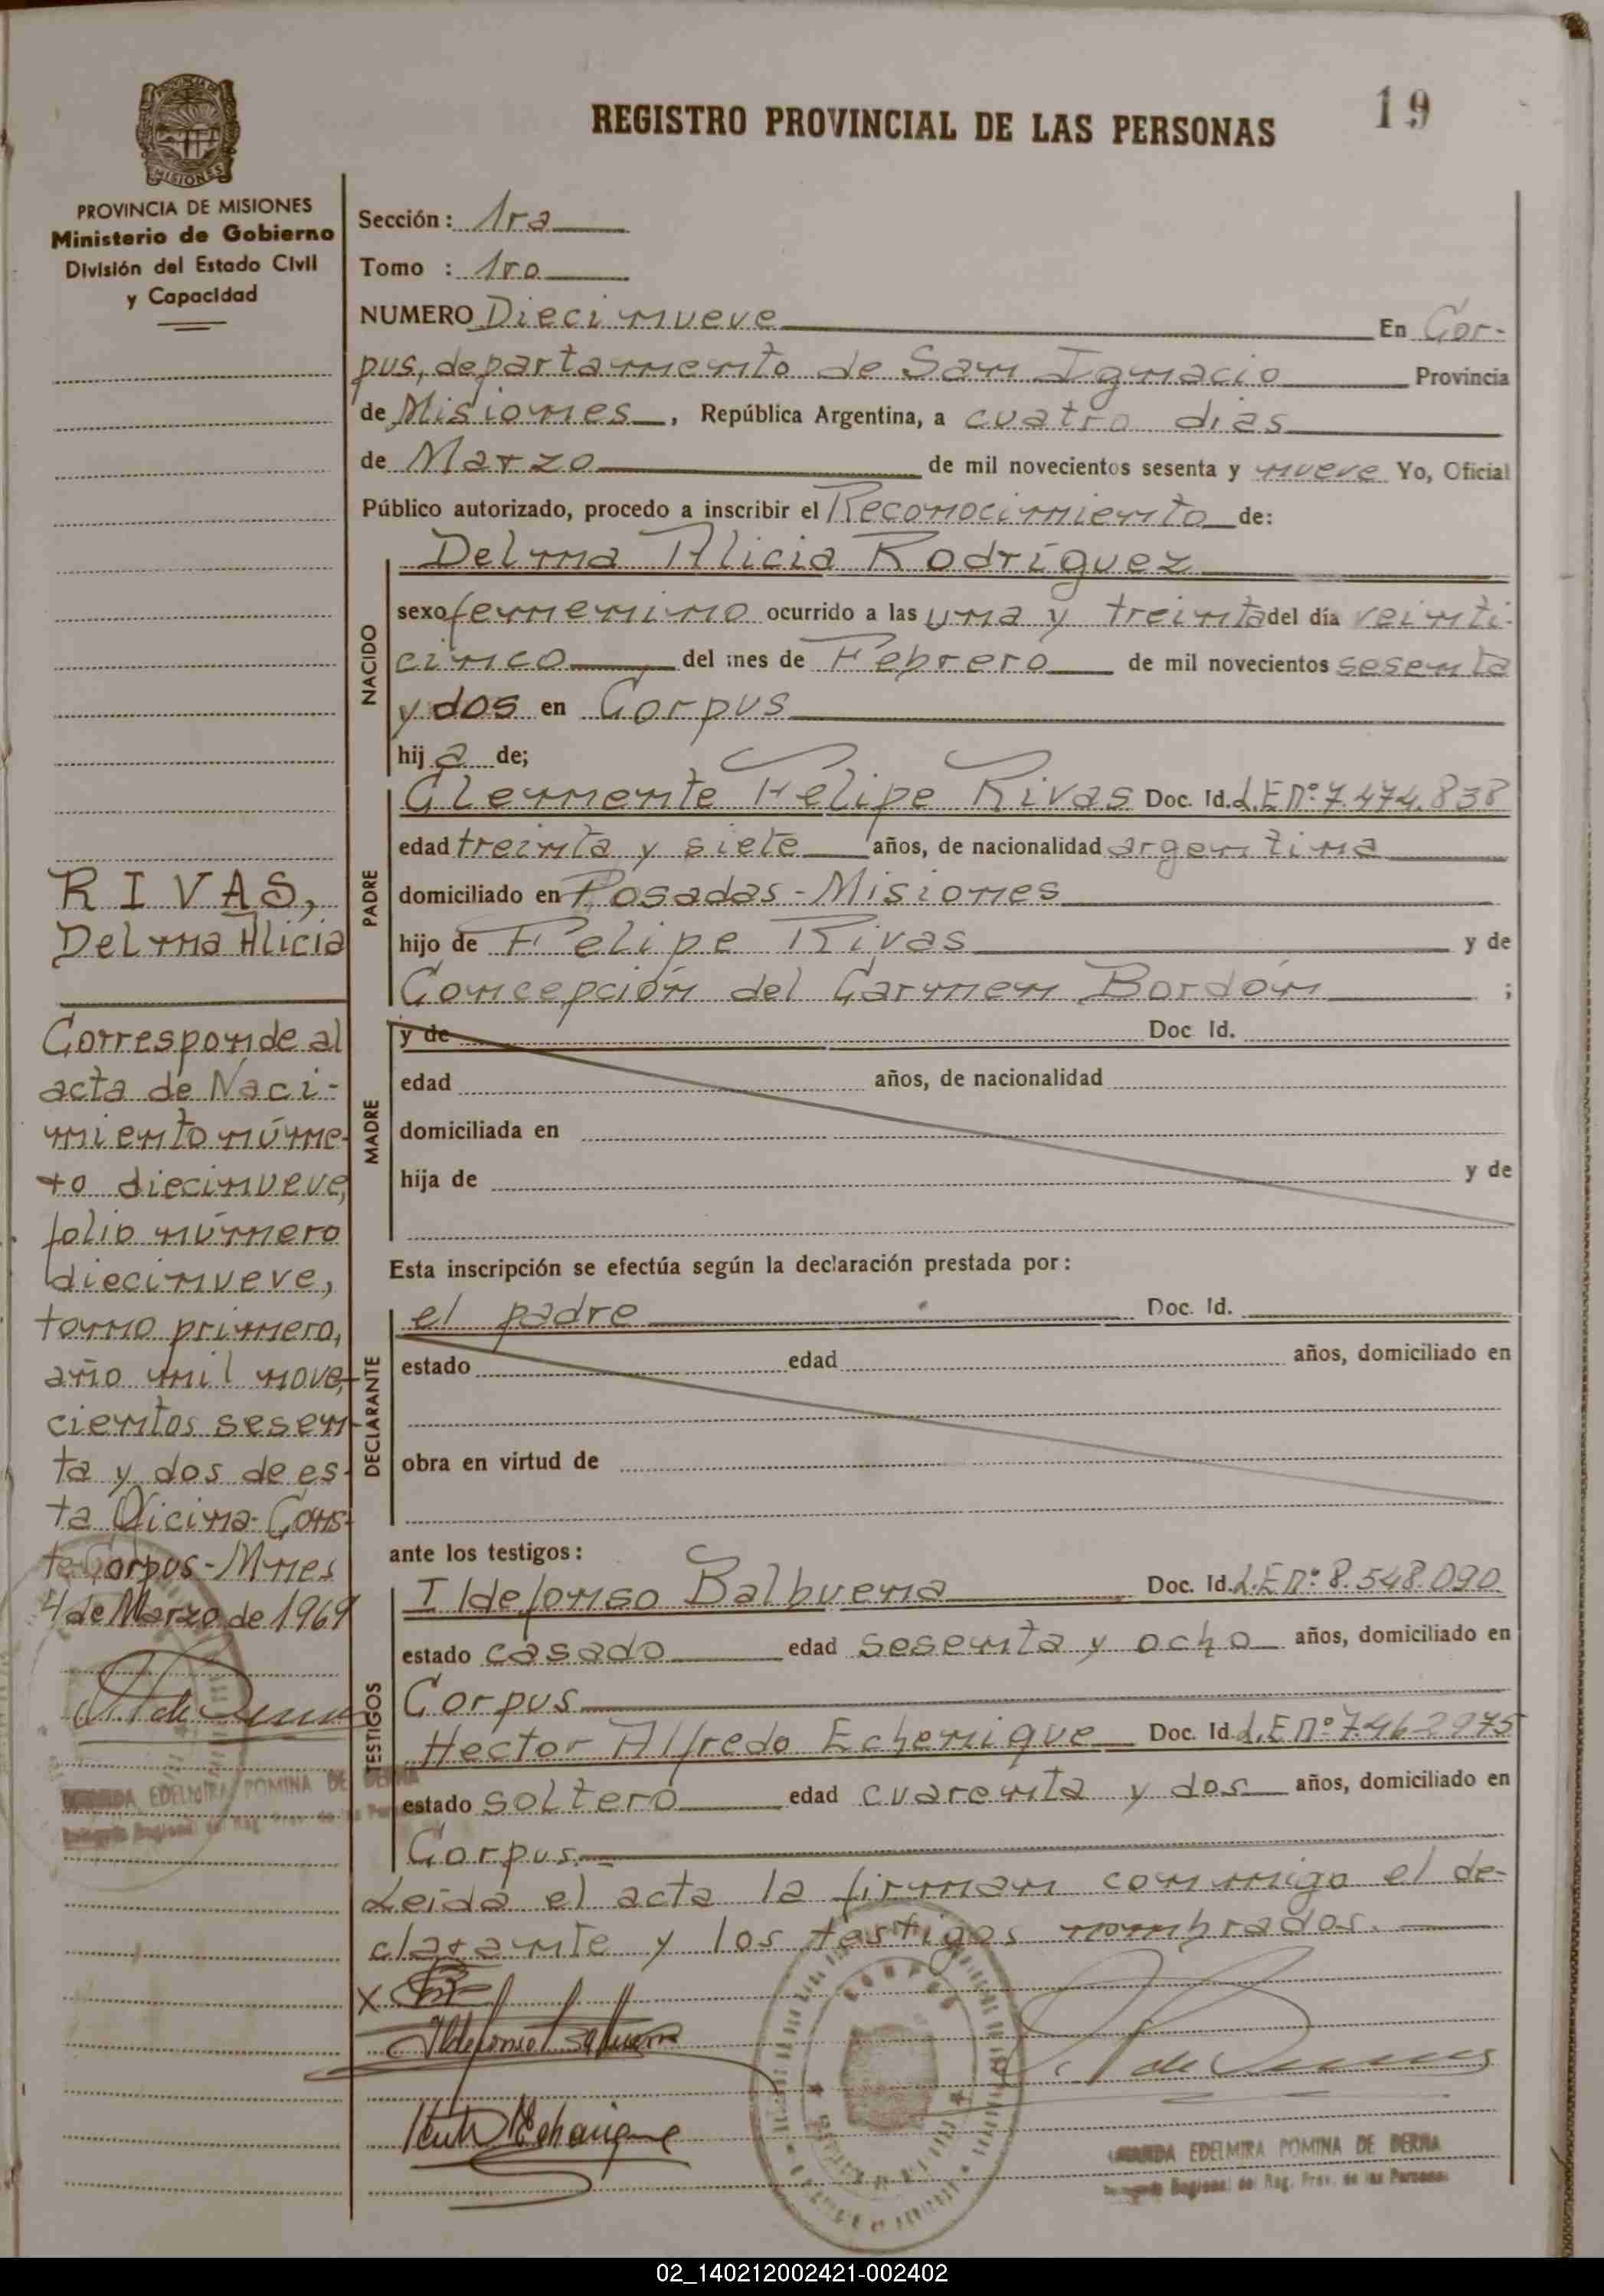 REGISTRO PROVINCIAL DE LAS PERSONAS
19
MISIONES
PROVINCIA DE MISIONES
Ministerio de Gobierno
División del Estado Civil
y Capacidad
Sección: 1ra
Tomo : 1ro
NUMERO Diecinueve En Cor-
pus, departamento de San Ignacio Provincia
de Misiones, República Argentina, a cuatro dias
de Marzo de mil novecientos sesenta y nueve Yo, Oficial
Público autorizado, procedo a inscribir el Reconocimiento de:
NACIDO
Delma Alicia Rodríguez
sexo femenino ocurrido a las una y treinta del día veinti-
cinco del mes de Febrero de mil novecientos sesenta
y dos en Corpus
hij a de;
PADRE
Clemente Felipe Rivas Doc. Id. L.E nº 7.474.838
edad treinta y siete años, de nacionalidad argentina
domiciliado en Posadas - Misiones
hijo de Felipe Rivas y de
Concepción del Carmen Bordón ;
MADRE
y de Doc. Id.
edad años, de nacionalidad
domiciliada en
hija de y de
Esta inscripción se efectúa según la declaración prestada por:
DECLARANTE
el padre Doc. Id.
estado edad años, domiciliado en
obra en virtud de
ante los testigos:
TESTIGOS
Ildefonso Balbuena Doc. Id. L.E nº 8.548.090
estado casado edad sesenta y ocho años, domiciliado en
Corpus
Hector Alfredo Echenique Doc. Id. L.E nº 7.462.975
estado soltero edad cuarenta y dos años, domiciliado en
Corpus.=
Leida el acta la firman conmigo el de-
clarante y los testigos nombrados.
X
Ildefonso Balbuena
EDELMIRA POMINA DE BERNA
Regional del Reg. Prov. de las Personas
RIVAS,
Delma Alicia
Corresponde al
acta de Naci-
miento núme-
ro diecinueve,
folio número
diecinueve,
tomo primero,
año mil nove-
cientos sesen-
ta y dos de es-
ta Oficina. Cons-
te Corpus - Mnes
4 de Marzo de 1969
EDELMIRA POMINA DE BERNA
Regional del Reg. Prov. de las Per
02_140212002421-002402